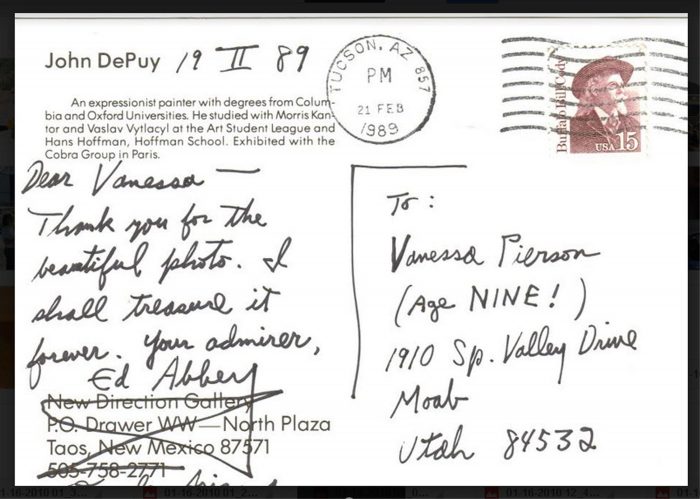 John DePuy 19 II 89
An expressionist painter with degrees from Colum-
bia and Oxford Universities. He studied with Morris Kan-
tor and Vaslav Vytlacyl at the Art Student League and
Hans Hoffman, Hoffman School. Exhibited with the
Cobra Group in Paris.
TUCSON, AZ 857
PM
21 FEB
1989
Buffalo Bill Cody
USA 15
Dear Vanessa —
Thank you for the
beautiful photo. I
shall treasure it
forever. Your admirer,
Ed Abbey
New Direction Gallery
P.O. Drawer WW—North Plaza
Taos, New Mexico 87571
505-758-2771
To:
Vanessa Pierson
(Age NINE!)
1910 Sp. Valley Drive
Moab
Utah 84532